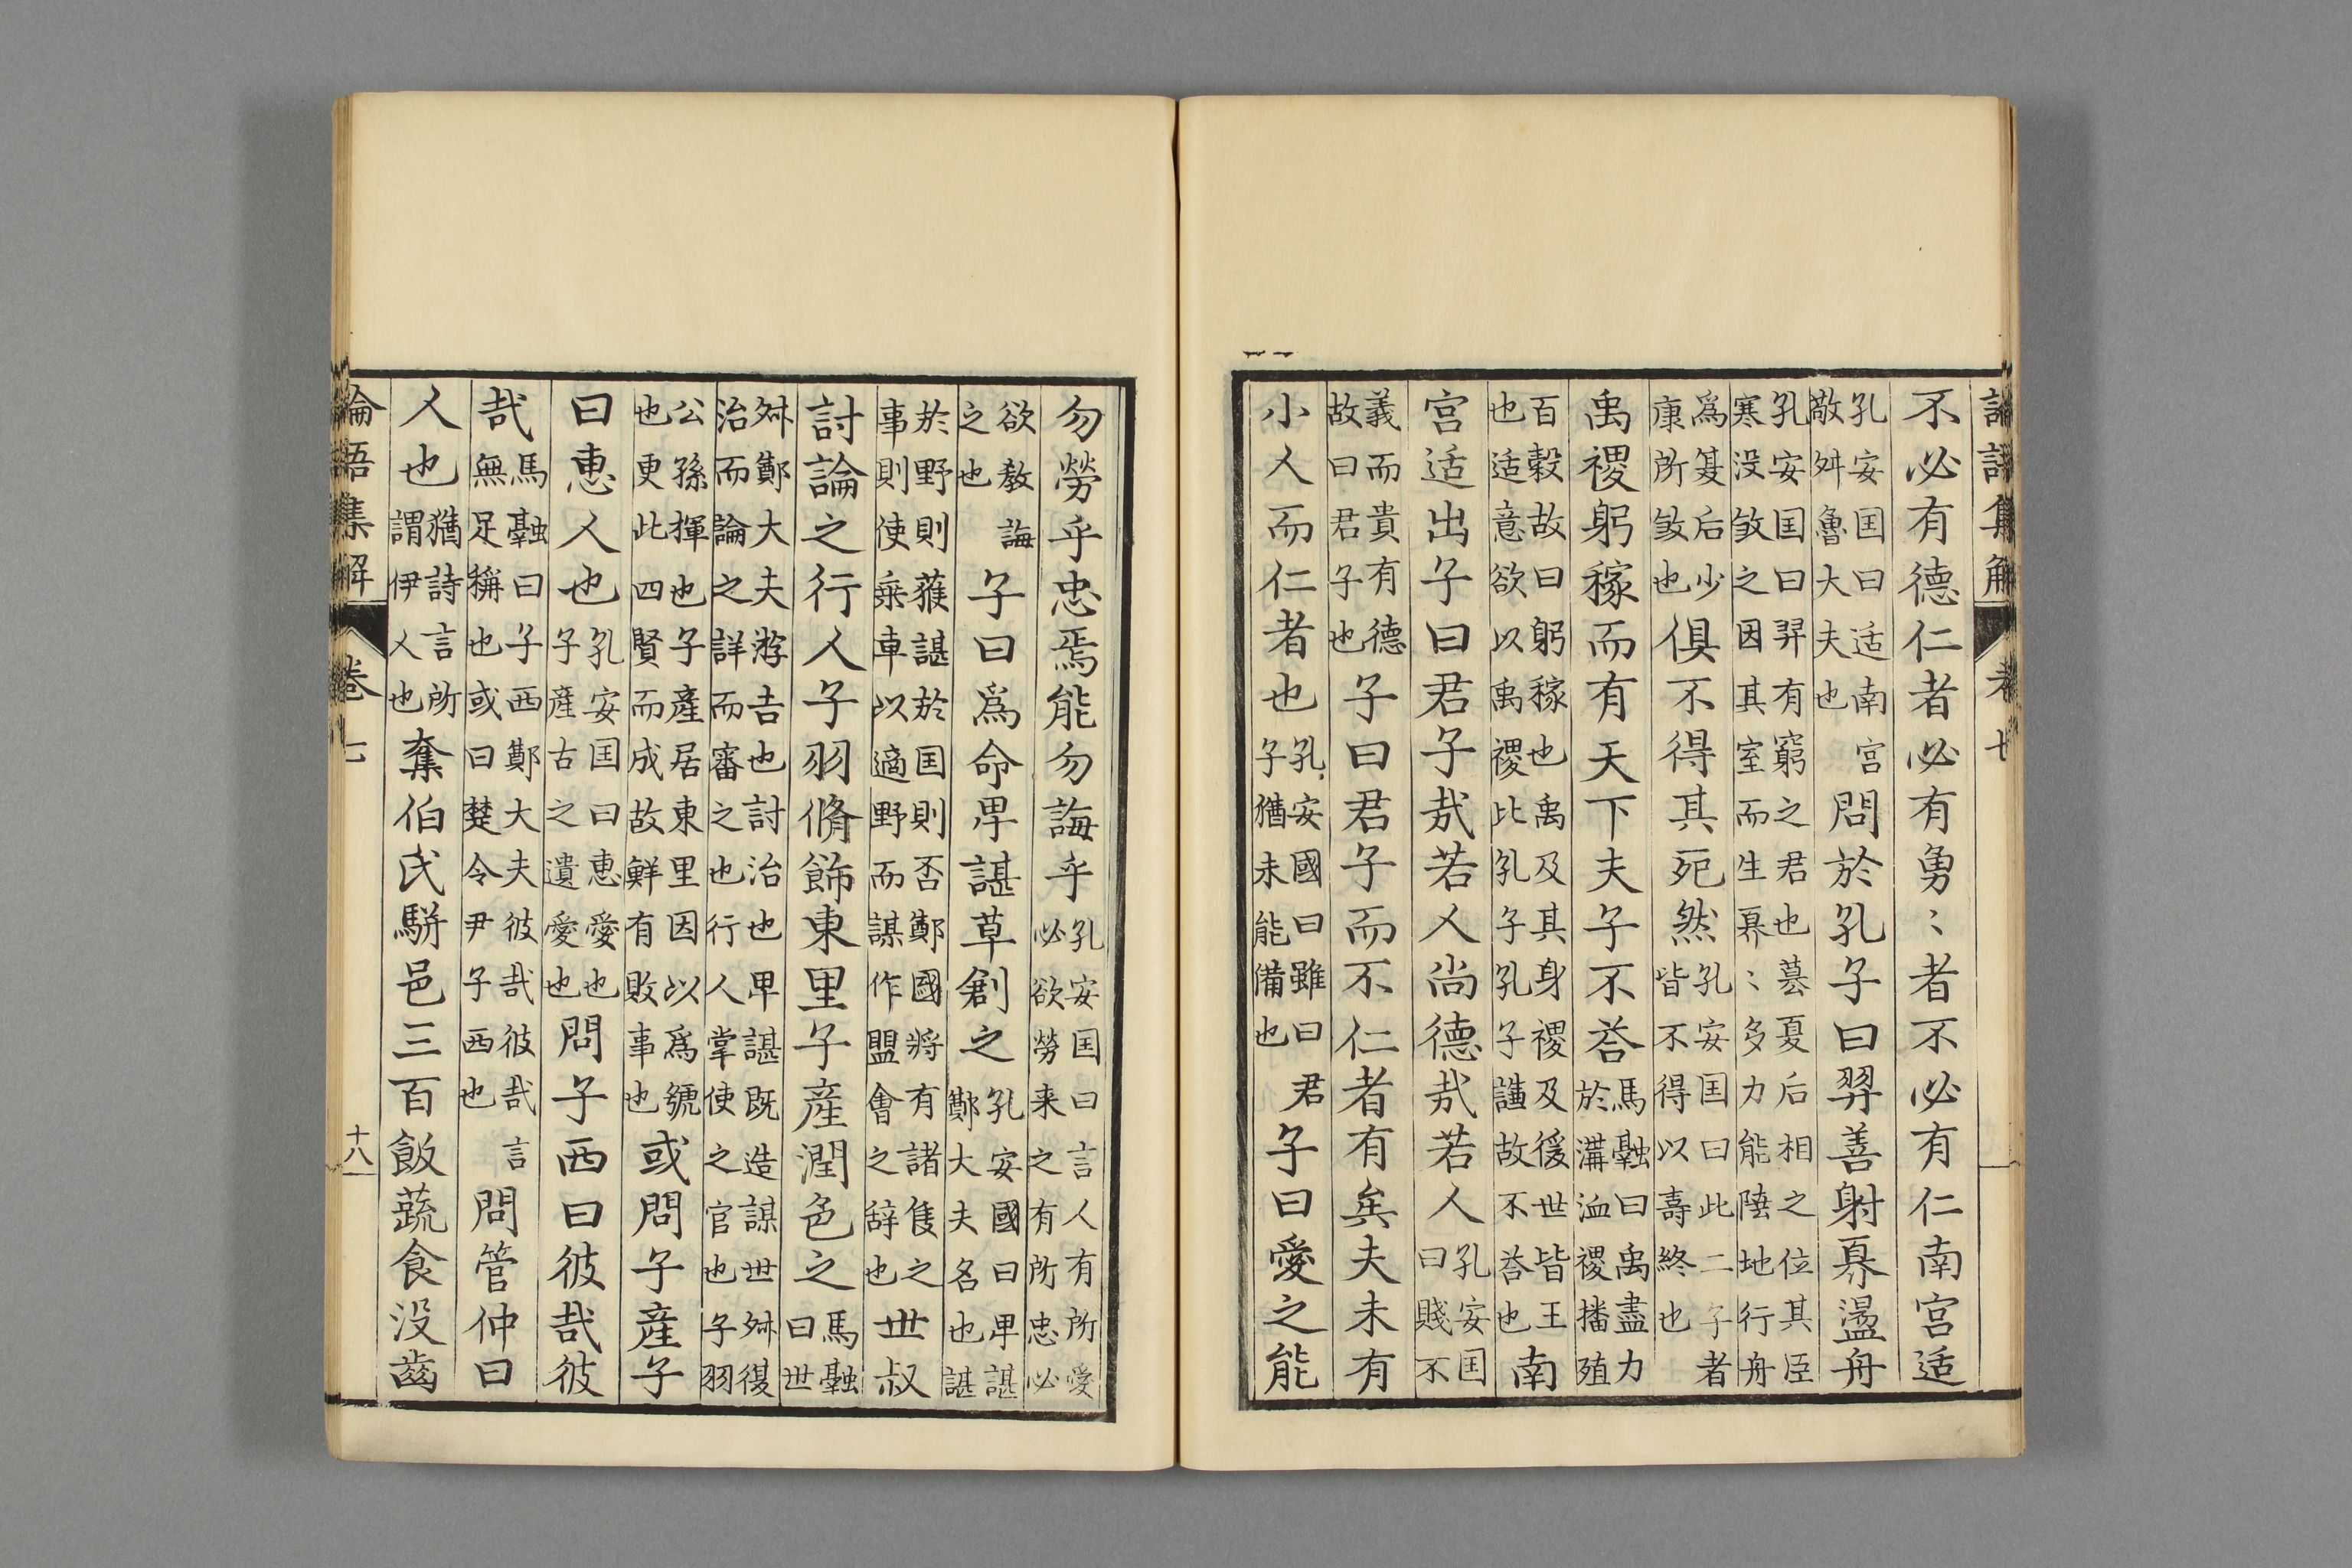 論語集解 卷七
不必有德仁者必有勇〻者不必有仁南宫适
孔安囯曰适南宮
敵舛魯大夫也
問於孔子曰羿善射奡盪舟
孔安囯曰羿有窮之君也簒夏后相之位其臣
寒浞殺之因其室而生奡〻多力能陸地行舟
爲夏后少
康所殺也
俱不得其死然
孔安囯曰此二子者
皆不得以壽終也
禹稷躬稼而有天下夫子不荅
馬融曰禹盡力
於溝洫稷播殖
百穀故曰躬稼也禹及其身稷及後世皆王
也适意欲以禹稷比孔子孔子謙故不荅也
南
宫适出子曰君子哉若人尚德哉若人
孔安囯
曰賤不
義而貴有德
故曰君子也
子曰君子而不仁者有矣夫未有
小人而仁者也
孔安國曰雖曰君
子猶未能備也
子曰愛之能
勿勞乎忠焉能勿誨乎
孔安囯曰言人有所愛
必欲勞来之有所忠必
欲教誨
之也
子曰爲命卑諶草創之
孔安國曰卑諶
鄭大夫名也諶
於野則獲諶於囯則否鄭國將有諸侯之
事則使乘車以適野而謀作盟會之辭也
世叔
討論之行人子羽脩飾東里子産潤色之
馬融
曰世
舛鄭大夫游吉也討治也卑諶既造謀世舛復
治而論之詳而審之也行人掌使之官也子羽
公孫揮也子產居東里因以爲號
也更此四賢而成故鮮有敗事也
或問子産子
曰惠人也
孔安囯曰惠愛也
子産古之遺愛也
問子西曰彼哉彼
哉
馬融曰子西鄭大夫彼哉彼哉言
無足稱也或曰楚令尹子西也
問管仲曰
人也
猶詩言所
謂伊人也
奪伯氏駢邑三百飯蔬食没齒
論語集解 卷七 十八